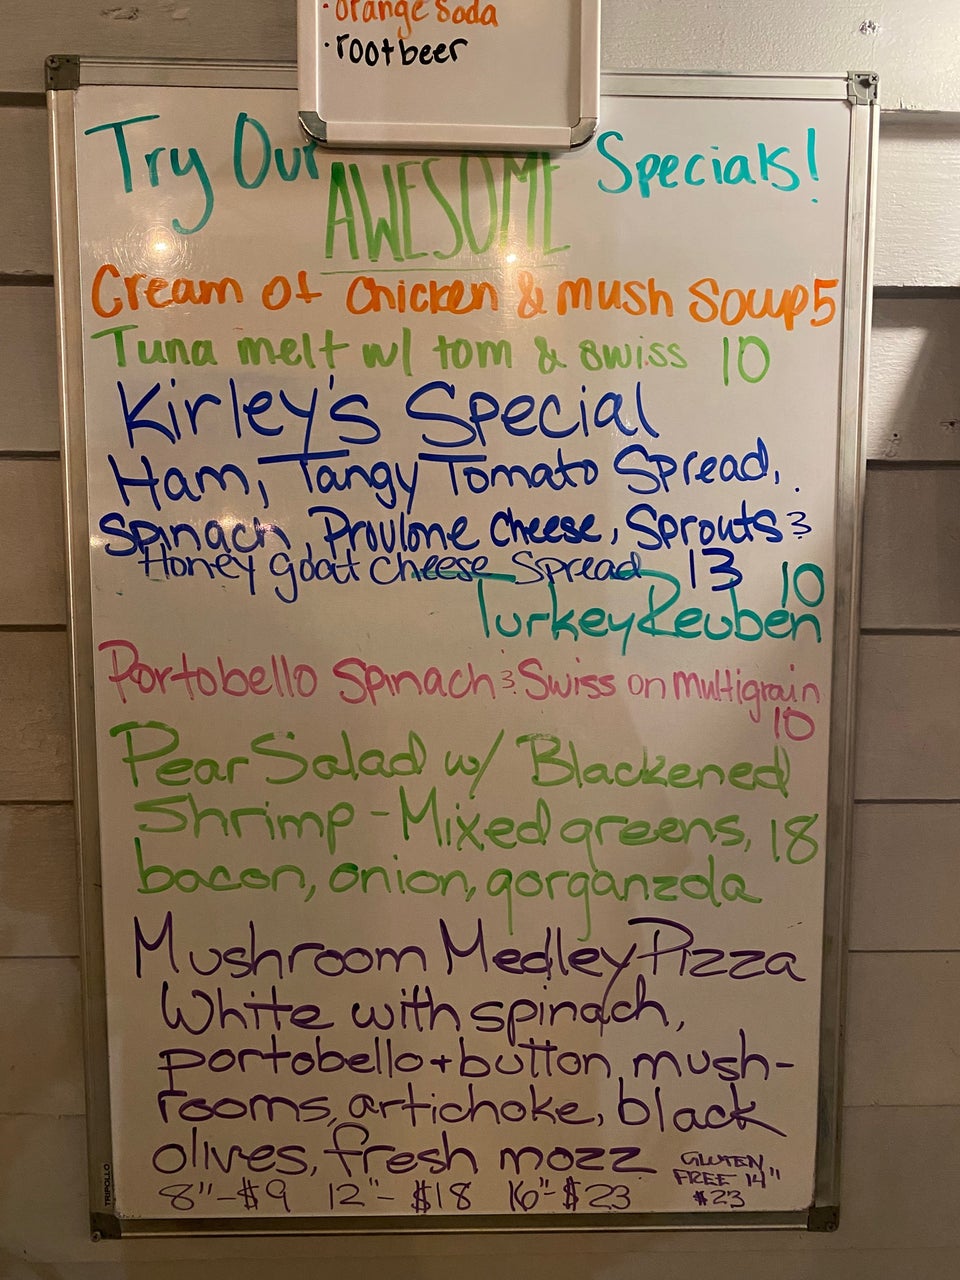 · orange soda
· rootbeer
Try Our AWESOME Specials!
Cream of Chicken & Mush Soup 5
Tuna melt w/ tom & swiss 10
Kirley's Special
Ham, Tangy Tomato Spread,
Spinach, Provlone Cheese, Sprouts &
Honey Goat Cheese Spread 13
Turkey Reuben 10
Portobello Spinach & Swiss on multigrain
10
Pear Salad w/ Blackened
Shrimp - Mixed greens, 18
bacon, onion, gorganzola
Mushroom Medley Pizza
White with spinach,
portobello + button mush-
rooms, artichoke, black
olives, fresh mozz
8"-$9 12"-$18 16"-$23
GLUTEN
FREE 14"
$23
TRIPOLLO